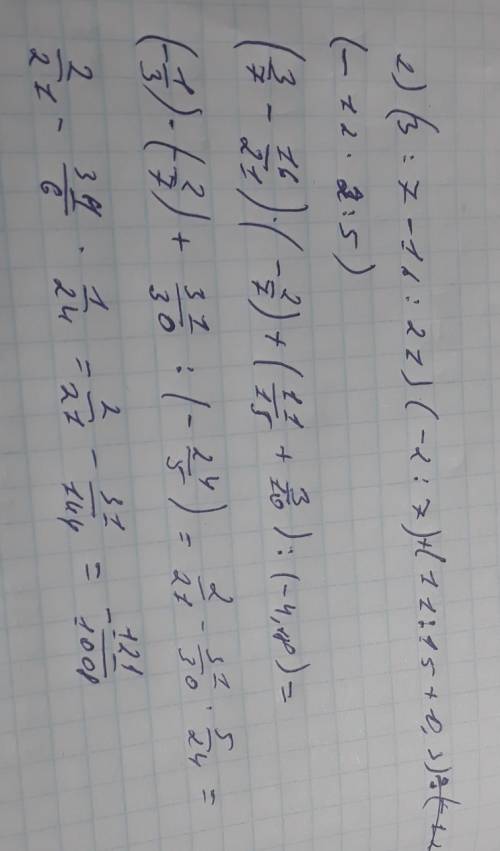 е) (3 : 7 - 16 : 21) (-2 : 7) + (11 : 15 + 0,3) : (-12
(- 12 · 2 : 5)
(3/7 - 16/21) · (-2/7) + (11/15 + 3/10) : (-4,8) =
(-1/3) · (-2/7) + 31/30 : (-24/5) = 2/21 - 31/30 · 5/24 =
2/21 - 31/6 · 1/24 = 2/21 - 31/144 = -121/1008